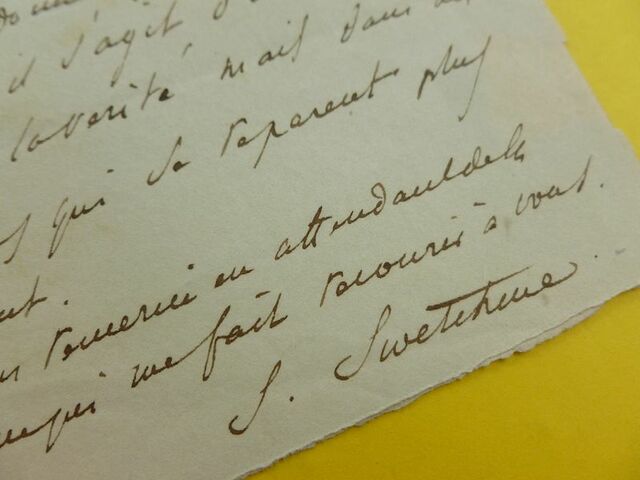 il s'agit
la vérité mais dans
qui se réparent plus
remercie en attendant de la
qui me fait recourir à vous.
S. Swetchine